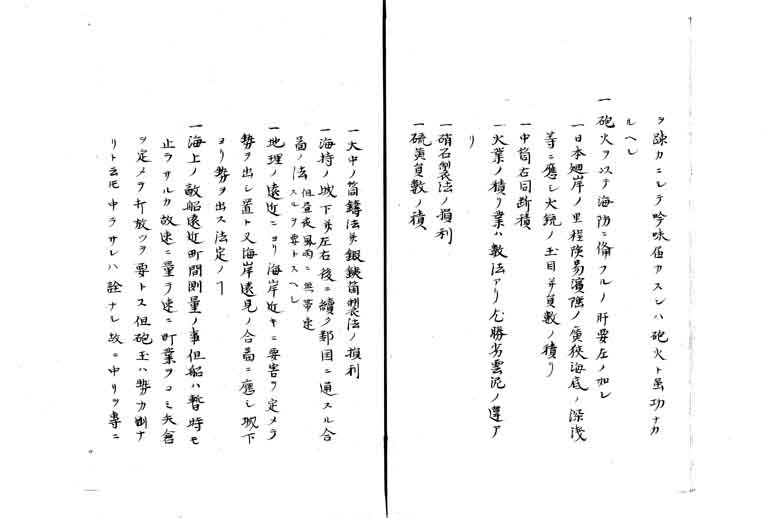 ヲ疎カニシテ吟味届カスンハ砲火ト虽功ナカ
ルヘシ
一砲火ヲ以テ海防ニ備フルノ肝要左ノ如シ
一日本廻岸ノ里程険易濱強ノ廣狭海底ノ深浅
等ニ應シ大銃ノ玉目并員数ノ積リ
一中筒右同断積
一火業ノ積リ業ハ数法アリ尤勝劣雲泥ノ違ア
リ
一硝石製法ノ損利
一硫黄員数ノ積
一大中ノ筒鑄法并銀鋏筒製法ノ損利
一海持ノ城下并左右後ニ續ク郡国ニ通スル合
啚ノ法 但昼夜風雨ニ無帯速
スルヲ要トスヘシ
一地理ノ遠近ニヨリ海岸近キニ要害ヲ定メテ
勢ヲ出シ置ト又海岸遠見ノ合啚ニ應シ城下
ヨリ勢ヲ出ス法定ノヿ
一海上ノ敵船遠近町間測量ノ事但船ハ暫時モ
止ラサルカ故速ニ量ラ速ニ町葉ヲコミ矢倉
ヲ定メヲ打放ツヲ要トス但砲玉ハ勢力剛ナ
リト云モ中ラサレハ詮ナシ故ニ中リヲ専ニ